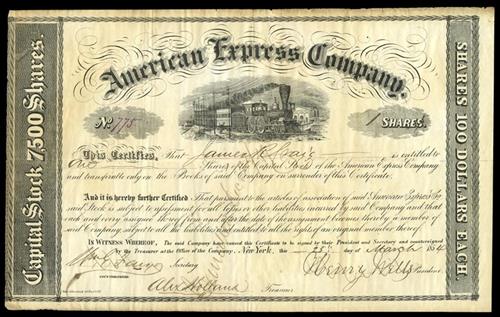 American Express Company.
Capital Stock 7,500 Shares.
SHARES 100 DOLLARS EACH.
No. 775
1 SHARES.
This Certifies, That James is entitled to
One Shares of the Capital Stock of the American Express Company
and transferable only on the Books of said Company on surrender of this Certificate.
And it is hereby further Certified That pursuant to the articles of association of said American Express Co.
said Stock is subject to assessment for all losses or other liabilities incurred by said Company and that
each and every assignee thereof from and after the date of the assignment becomes thereby a member of
said Company, subject to all the liabilities and entitled to all the rights of an original member thereof.
IN WITNESS WHEREOF, The said Company have caused this Certificate to be signed by their President and Secretary and countersigned
by the Treasurer at the Office of the Company, New York, this day of March 1854
Wm G Fargo Secretary
Henry Wells President
COUNTERSIGNED
Alex Holland Treasurer